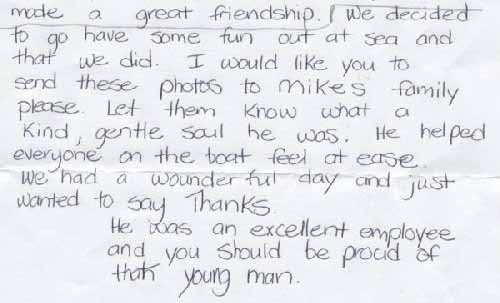 made a great friendship. We decided
to go have some fun out at sea and
that we did. I would like you to
send these photos to Mikes family
please. Let them know what a
kind, gentle soul he was. He helped
everyone on the boat feel at ease.
We had a wounderful day and just
wanted to say Thanks.
He was an excellent employee
and you should be proud of
that young man.